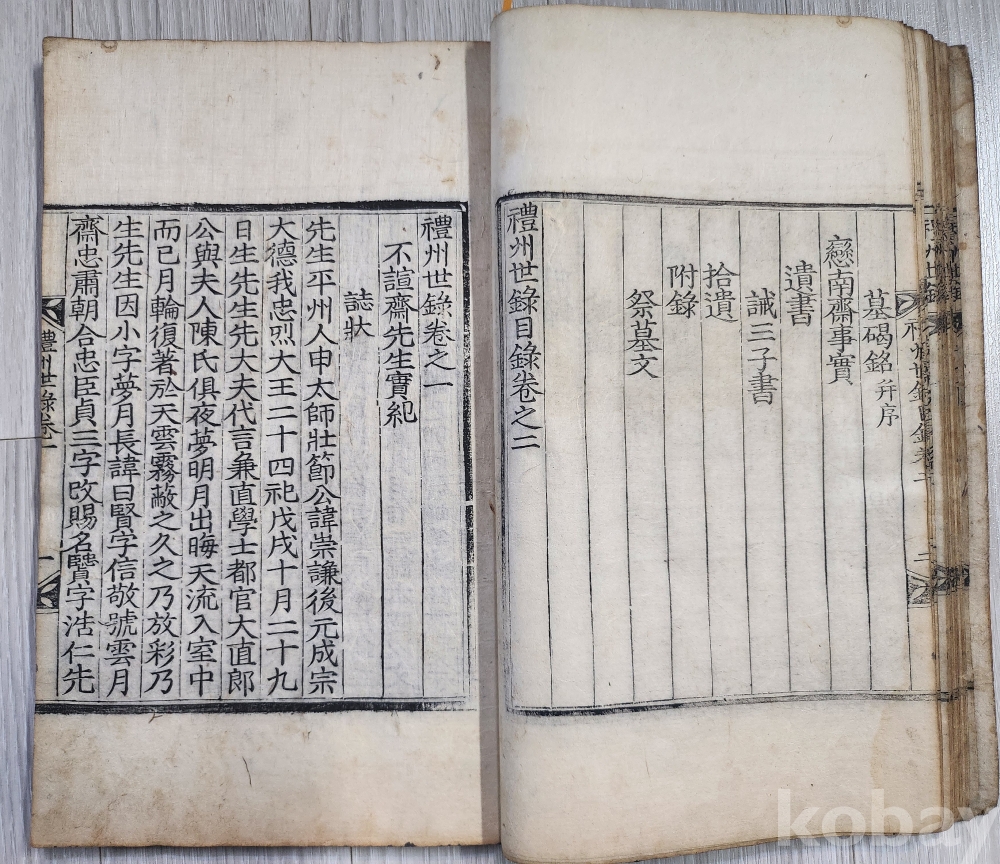 墓碣銘并序
戀南齋事實
遺書
誡三子書
拾遺
附錄
祭墓文
禮州世錄目錄卷之二
禮州世錄卷之一
不諠齋先生實紀
誌狀
先生平州人申太師壯節公諱崇謙後元成宗
大德我忠烈大王二十四祀戊戌十月二十九
日生先生先大夫代言兼直學士都官大直郎
公與夫人陳氏俱夜夢明月出晦天流入室中
而已月輪復著於天雲霧蔽之久之乃放彩乃
生先生因小字夢月長諱曰賢字信敬號雲月
齋忠肅朝合忠臣貞三字改賜名贒字浩仁先
禮州世錄卷一
一
kobay